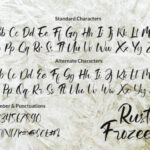 Standard Characters
Bb Cc Dd Ee Ff Gg Hh Ii Jj Kk Ll M
Pp Qq Rr Ss Tt Uu Vv Ww Xx Yy Z
Alternate Characters
Bb Cc Dd Ee Ff Gg Hh Ii Jj Kk Ll M
Pp Qq Rr Ss Tt Uu Vv Ww Xx Yy Z
mber & Punctuations
Rust
Frozee